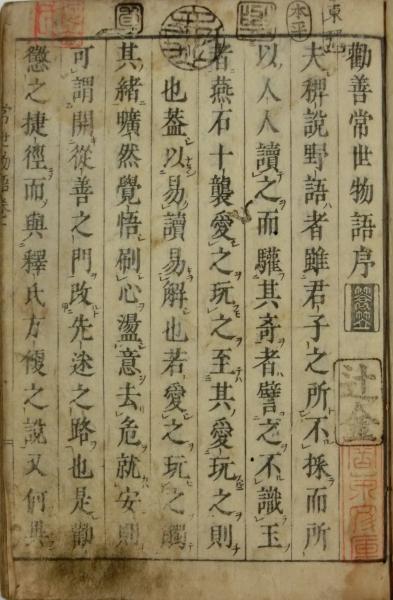 勸善常世物語序
夫稗說野語者雖君子之所不採而所
以人人讀之而驩其奇者譬之不識玉
者燕石十襲愛之玩之至其愛玩之則
也葢以易讀易解也若愛之玩之觸
其緒曠然覺悟刷心盪意去危就安則
可謂開從善之門改先迷之路也是勸
懲之捷徑而與釋氏方便之說又何異
常世物語卷一
辻金